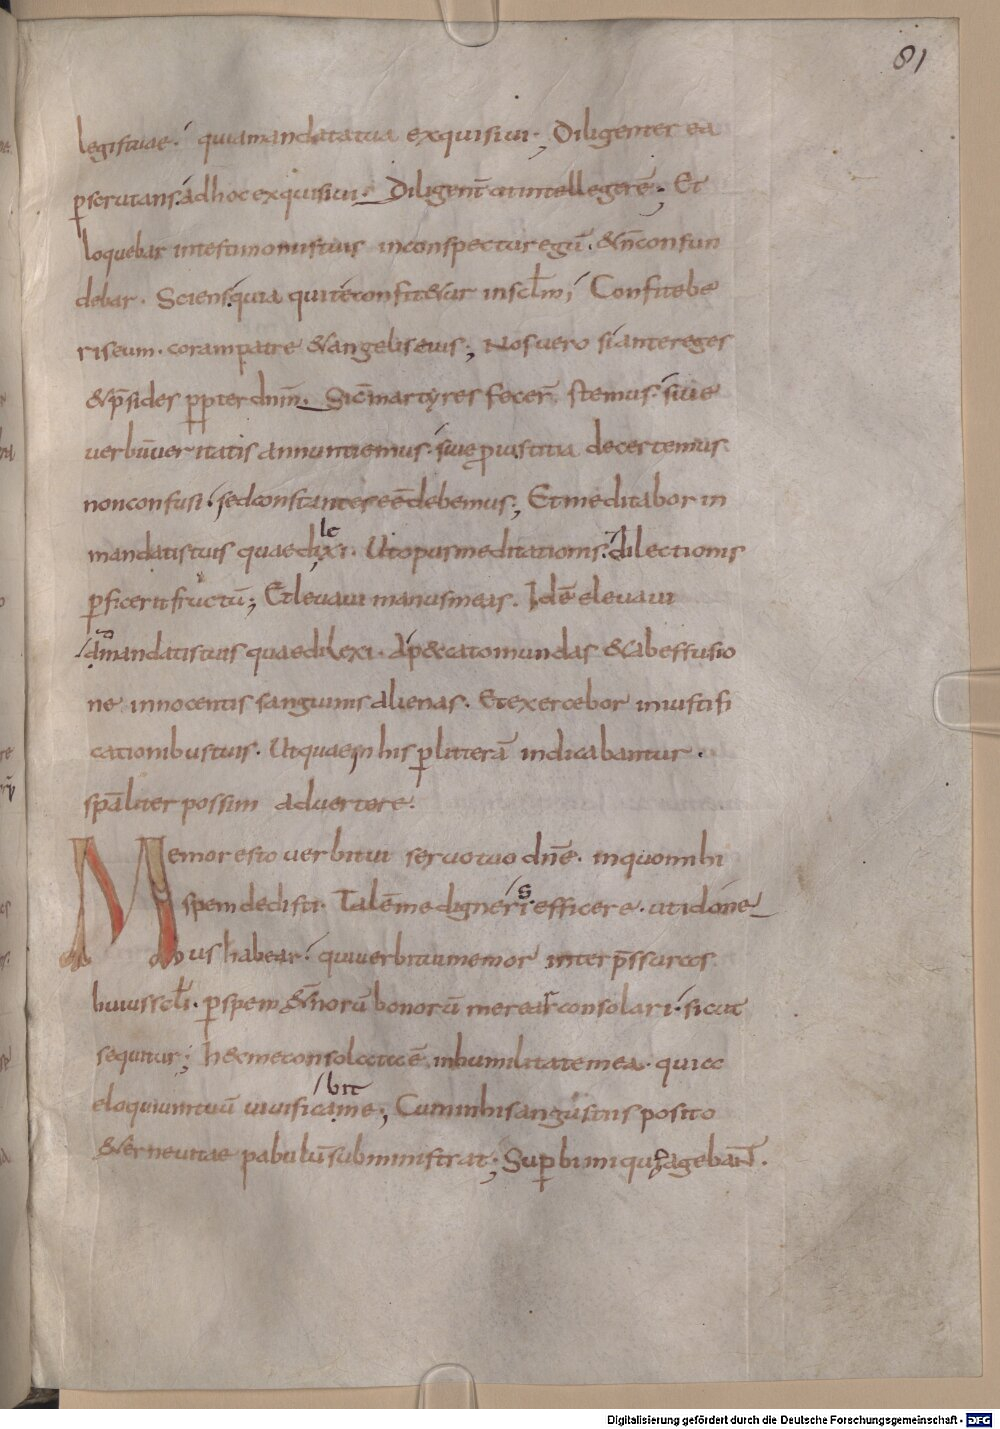 81
legis tuae. quia mandata tua exquisivi; Diligenter ea
p̱scrutans. ad hoc exquisivi. Diligent̄ ut intellegerē; Et
loquebar in testimoniis tuis in conspectu regū. & n̄ confun
debar. Sciens quia qui te confit&ur in sc̄lm; Confitebe
ris eum. coram patre & angelis eius; Nos vero si ante reges
& p̄sides ꝓpter dnm̄. Sic̄ martyres fecer̄ stemus. sive
verbū veritatis annuntiemus. sive ꝓ iustitia decertemus.
non confusi. sed constantes eē debemus; Et meditabor in
mandatis tuis quae dilexi. Ut opus meditationis. dilectionis
ꝑficerit fructū; Et levavi manus meas. Idē elevavi
ad mandata tuis quae dilexi. a p&cato mundas & ab effusio
ne innocentis sanguinis alienas. Et exercebor in iustifi
cationibus tuis. Ut quae in his ꝑ litterā indicabantur.
sp̄aliter possim advertere.
Memor esto verbi tui servo tuo dn̄e. in quo mihi
spem dedisti. Talē me digneris efficere. ut idone
us habear. qui verbi tui memor inter p̄ssuras
huius scl̄i. ꝑ spem &n̄orū bonorū merear consolari. sicut
sequitur; Haec me consolata ē in humilitate mea. quia
bit
eloquium tuū vivificame; Cum mihi in angustiis posito
&ernae vitae pabulū subministrat; Suꝑbi iniquę ageban̄.
Digitalisierung gefördert durch die Deutsche Forschungsgemeinschaft - DFG